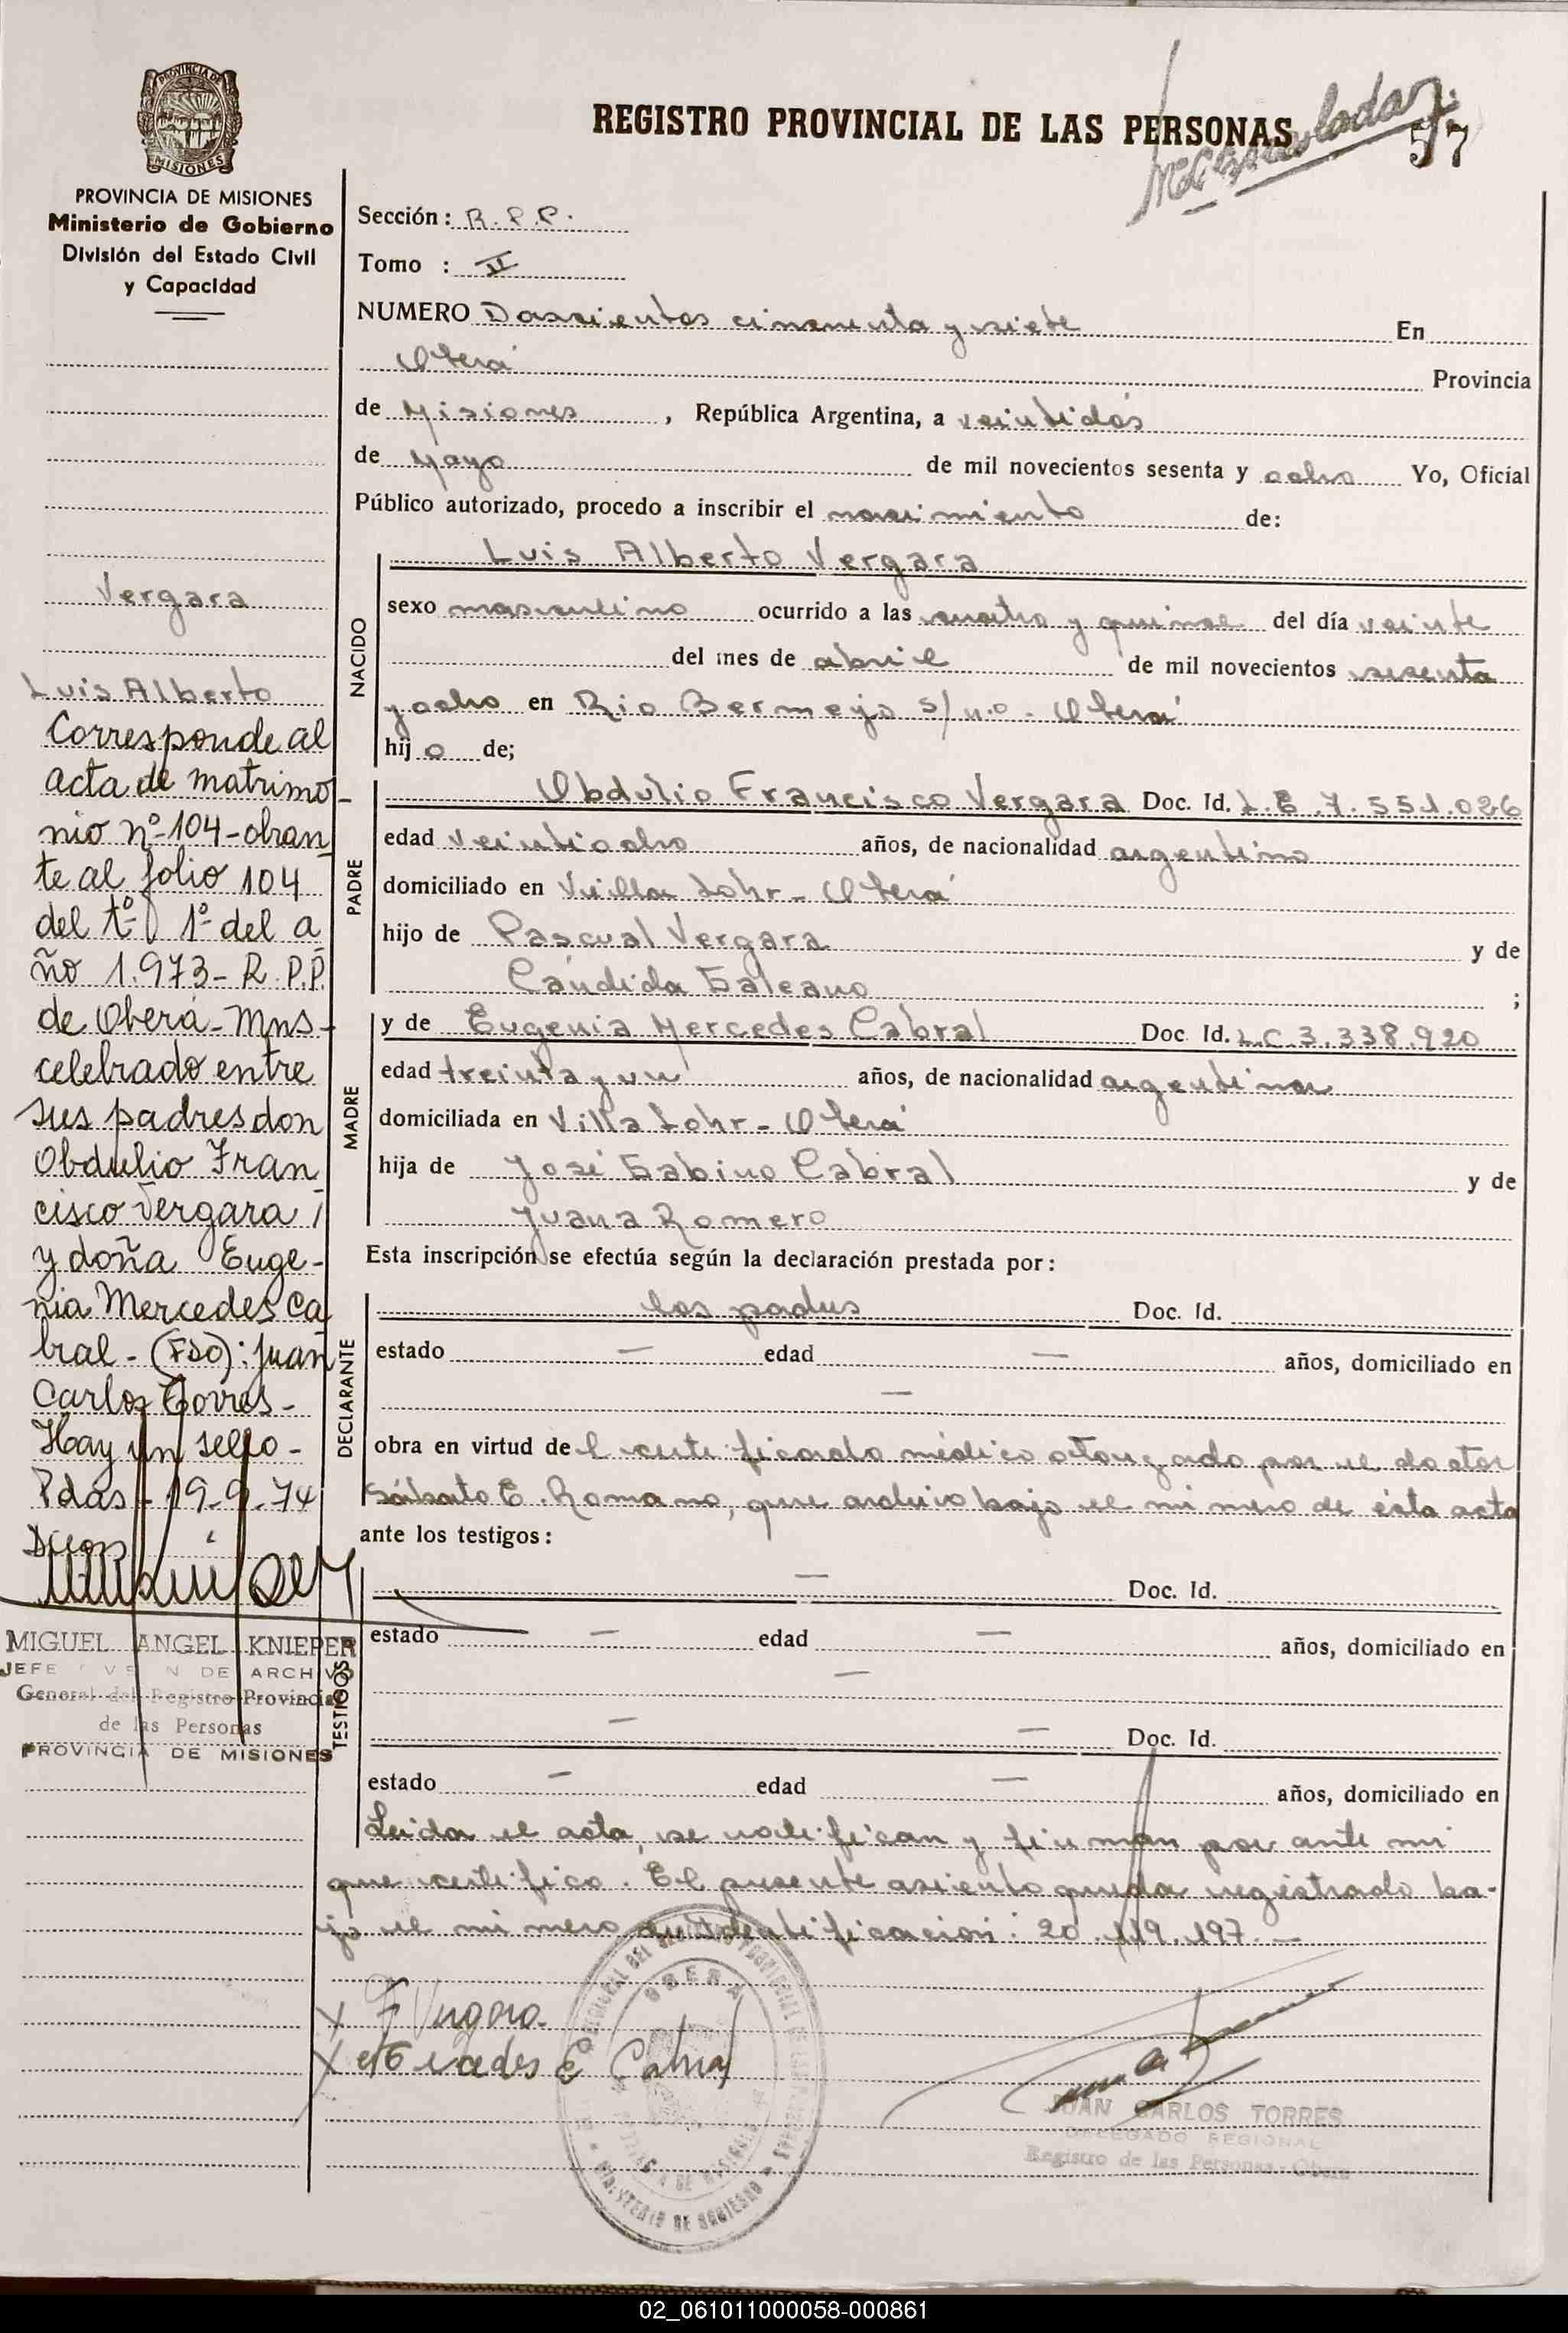 PROVINCIA DE
MISIONES
PROVINCIA DE MISIONES
Ministerio de Gobierno
División del Estado Civil
y Capacidad
REGISTRO PROVINCIAL DE LAS PERSONAS
57
Sección: R.P.P.
Tomo : II
NUMERO Doscientos cincuenta y siete En
Oberá Provincia
de Misiones, República Argentina, a veintidós
de Mayo de mil novecientos sesenta y ocho Yo, Oficial
Público autorizado, procedo a inscribir el nacimiento de:
NACIDO
Luis Alberto Vergara
sexo masculino ocurrido a las cuatro y quince del día veinte
del mes de abril de mil novecientos sesenta
y ocho en Rio Bermejo s/n.o - Oberá
hijo de;
PADRE
Obdulio Francisco Vergara Doc. Id. L.E. 7.551.026
edad veintiocho años, de nacionalidad argentino
domiciliado en Villa Lohr - Oberá
hijo de Pascual Vergara y de
Cándida Galeano ;
MADRE
y de Eugenia Mercedes Cabral Doc. Id. L.C. 3.338.920
edad treinta y un años, de nacionalidad argentina
domiciliada en Villa Lohr - Oberá
hija de José Gabino Cabral y de
Juana Romero
Esta inscripción se efectúa según la declaración prestada por:
DECLARANTE
los padres Doc. Id.
estado — edad — años, domiciliado en
—
obra en virtud del certificado médico otorgado por el doctor
Sábato E. Romano, que archivo bajo el número de ésta acta
ante los testigos:
TESTIGOS
— Doc. Id.
estado — edad — años, domiciliado en
—
— — Doc. Id.
estado — edad — años, domiciliado en
Leída el acta, se notifican y firman por ante mi
que certifico. El presente asiento queda registrado ba-
jo el número de identificación: 20.119.197.—
X F Vergara.
X Mercedes E Cabral
OBERA
MINISTERIO DE GOBIERNO
JUAN CARLOS TORRES
DELEGADO REGIONAL
Registro de las Personas - Oberá
Vergara
Luis Alberto
Corresponde al
acta de matrimo-
nio nº 104 - obran
te al folio 104
del tº 1º del a
ño 1.973 - R.P.P.
de Oberá - Mns -
celebrado entre
sus padres don
Obdulio Fran
cisco Vergara
y doña Euge-
nia Mercedes Ca
bral - (FDO): Juan
Carlos Torres -
Hay un sello -
Pdas - 19-9-74
MIGUEL ANGEL KNIEPER
JEFE DE ARCHIVO
General del Registro Provincial
de las Personas
PROVINCIA DE MISIONES
02_061011000058-000861